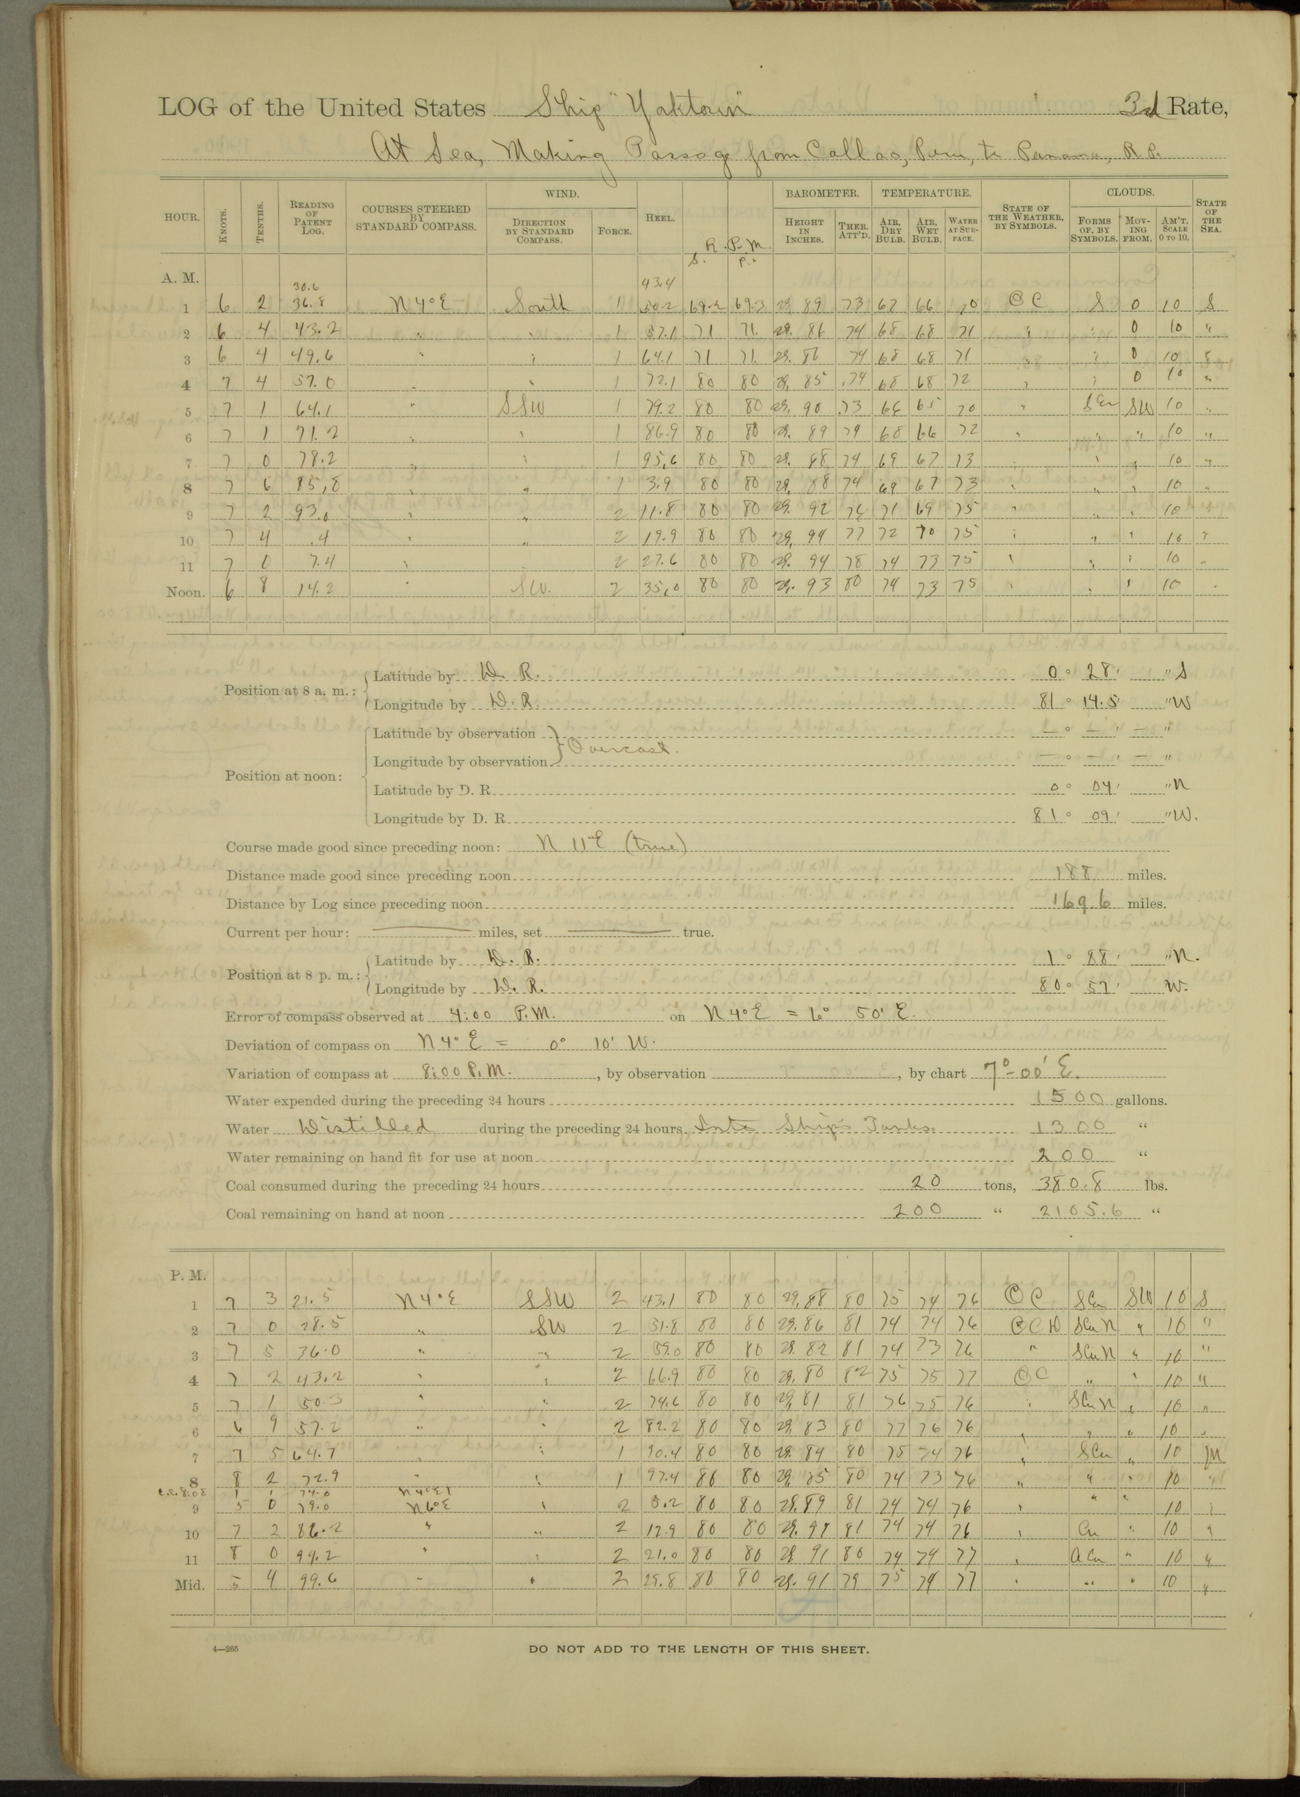 LOG of the United States Ship "Yorktown" 3rd Rate,
At Sea, Making Passage from Callao, Peru, to Panama, R.P.
HOUR. KNOTS. TENTHS. READING OF PATENT LOG. COURSES STEERED BY STANDARD COMPASS. WIND. DIRECTION BY STANDARD COMPASS. FORCE. HEEL. R.P.M. S. P. BAROMETER. HEIGHT IN INCHES. THER. ATT'D. TEMPERATURE. AIR, DRY BULB. AIR, WET BULB. WATER AT SURFACE. STATE OF THE WEATHER, BY SYMBOLS. CLOUDS. FORMS OF, BY SYMBOLS. MOVING FROM. AM'T. SCALE 0 TO 10. STATE OF THE SEA.
A. M. 30.6 43.4
1 6 2 36.8 N 4° E South 1 50.2 69.2 69.3 29. 89 73 67 66 70 OC S 0 10 S
2 6 4 43.2 " " 1 57.1 71 71. 29. 86 74 68 68 71 " " 0 10 "
3 6 4 49.6 " " 1 64.1 71 71. 29. 86 74 68 68 71 " " 0 10
4 7 4 57.0 " " 1 72.1 80 80 29. 85 74 68 68 72 " " 0 10 "
5 7 1 64.1 " SSW 1 79.2 80 80 29. 90 73 66 65 70 " SCu SW 10 "
6 7 1 71.2 " " 1 86.9 80 80 29. 89 74 68 66 72 " " " 10 "
7 7 0 78.2 " " 1 95.6 80 80 29. 88 74 69 67 73 " " " 10 "
8 7 6 85.8 " " 1 3.9 80 80 29. 88 74 69 67 73 " " " 10 "
9 7 2 93.0 " " 2 11.8 80 80 29. 92 76 71 69 75 " " " 10 "
10 7 4 .4 " " 2 19.9 80 80 29. 94 77 72 70 75 " " " 10 "
11 7 0 7.4 " " 2 27.6 80 80 29. 94 78 74 73 75 " " " 10 "
Noon. 6 8 14.2 " SW. 2 35.0 80 80 29. 93 80 74 73 75 " " " 10 "
Position at 8 a. m.: Latitude by D. R. 0° 28' " S
Longitude by D. R. 81° 14.5 " W
Position at noon: Latitude by observation } Overcast. — ° — ' — "
Longitude by observation — ° — ' — "
Latitude by D. R. 0° 04' " N
Longitude by D. R. 81° 09' " W.
Course made good since preceding noon: N 11° E (true)
Distance made good since preceding noon 188 miles.
Distance by Log since preceding noon 169.6 miles.
Current per hour: — miles, set — true.
Position at 8 p. m.: Latitude by D. R. 1° 88' " N.
Longitude by D. R. 80° 57' W.
Error of compass observed at 4:00 P.M. on N 4° E = 6° 50' E.
Deviation of compass on N 4° E = 0° 10' W.
Variation of compass at 8:00 P.M., by observation, by chart 7°-00' E.
Water expended during the preceding 24 hours 1500 gallons.
Water Distilled during the preceding 24 hours Into Ship's Tanks. 1300 "
Water remaining on hand fit for use at noon 200 "
Coal consumed during the preceding 24 hours 20 tons, 380.8 lbs.
Coal remaining on hand at noon 200 " 2105.6 "
P. M.
1 7 3 21.5 N 4° E SSW 2 43.1 80 80 29. 88 80 75 74 76 OC SCu SW 10 S
2 7 0 28.5 " SW 2 51.8 80 80 29. 86 81 74 74 76 OCD SCu N " 10 "
3 7 5 36.0 " " 2 59.0 80 80 29. 82 81 74 73 76 " SCu N " 10 "
4 7 2 43.2 " " 2 66.9 80 80 29. 80 82 75 75 77 OC " " 10 "
5 7 1 50.3 " " 2 74.6 80 80 29. 81 81 76 75 76 " SCu N " 10 "
6 6 9 57.2 " " 2 82.2 80 80 29. 83 80 77 76 76 " " " 10 "
7 7 5 64.7 " " 1 90.4 80 80 29. 84 80 75 74 76 " SCu " 10 M
8 8 2 72.9 " " 1 97.4 80 80 29. 85 80 74 73 76 " " " 10 "
1 1 74.0 N 4° E
9 5 0 79.0 N 6° E " 2 5.2 80 80 29. 89 81 74 74 76 " " " 10 "
10 7 2 86.2 " " 2 12.9 80 80 29. 91 81 74 74 76 " Cu " 10 "
11 8 0 94.2 " " 2 21.0 80 80 29 91 80 74 74 77 " A Cu " 10 "
Mid. 5 4 99.6 " " 2 29.8 80 80 29. 91 79 75 74 77 " " " 10 "
4—265
DO NOT ADD TO THE LENGTH OF THIS SHEET.